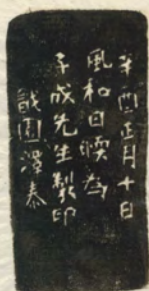 辛酉正月十日
風和日暖為
子成先生製印
戩園澤泰